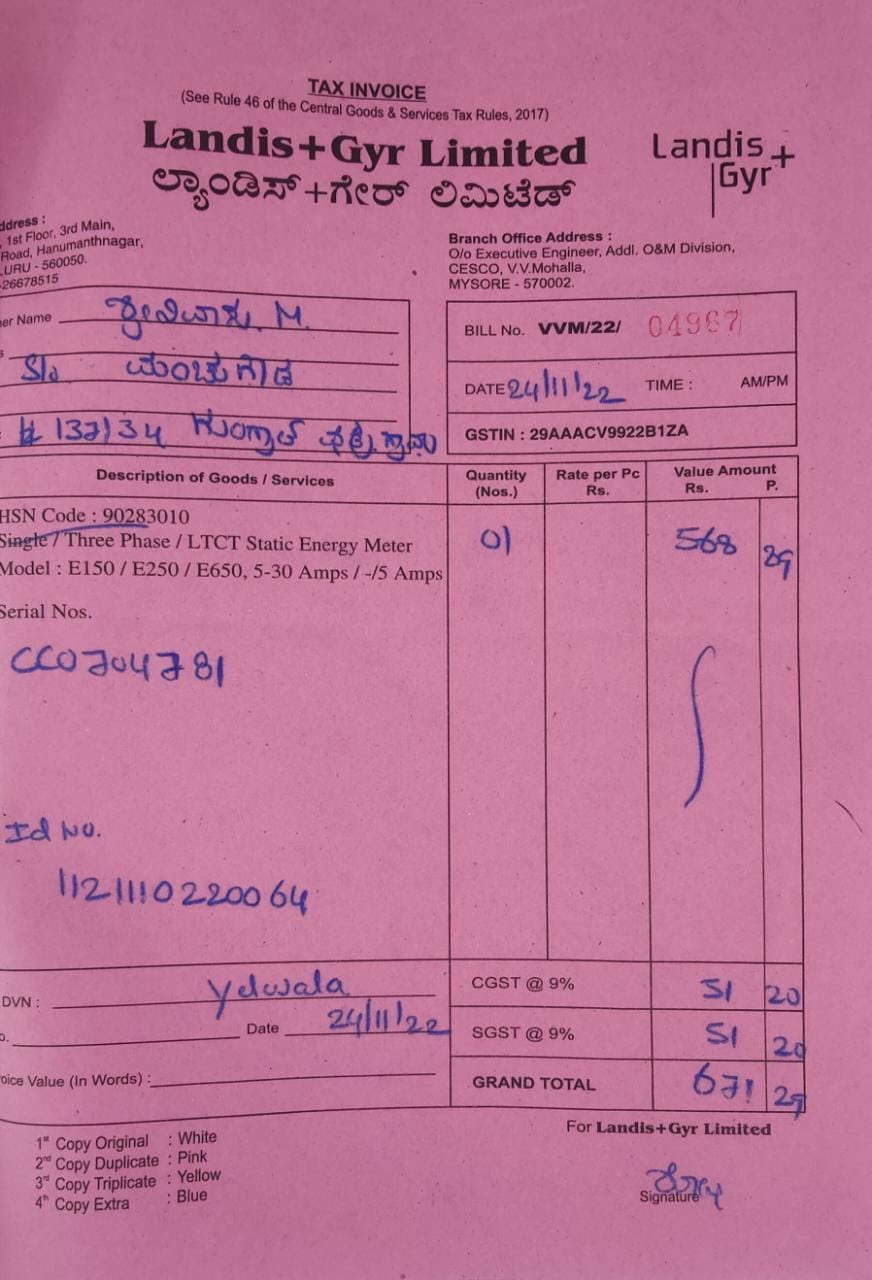 TAX INVOICE
(See Rule 46 of the Central Goods & Services Tax Rules, 2017)
Landis+Gyr Limited
ಲ್ಯಾಂಡಿಸ್+ಗೇರ್ ಲಿಮಿಟೆಡ್
Landis+
Gyr
ddress :
1st Floor, 3rd Main,
Road, Hanumanthnagar,
LURU - 560050.
-26678515
Branch Office Address :
O/o Executive Engineer, Addl. O&M Division,
CESCO, V.V.Mohalla,
MYSORE - 570002.
er Name M.
S/o
# 137/34
BILL No. VVM/22/ 04967
DATE 24/11/22 TIME : AM/PM
GSTIN : 29AAACV9922B1ZA
Description of Goods / Services Quantity (Nos.) Rate per Pc Rs. Value Amount Rs. P.
HSN Code : 90283010
Single / Three Phase / LTCT Static Energy Meter 01 568 29
Model : E150 / E250 / E650, 5-30 Amps / -/5 Amps
Serial Nos.
CC0704781
Id No.
11211110220064
DVN : Yelwala
CGST @ 9% 51 20
o. Date 24/11/22
SGST @ 9% 51 20
oice Value (In Words) :
GRAND TOTAL 671 29
For Landis+Gyr Limited
1st Copy Original : White
2nd Copy Duplicate : Pink
3rd Copy Triplicate : Yellow
4th Copy Extra : Blue
Signature